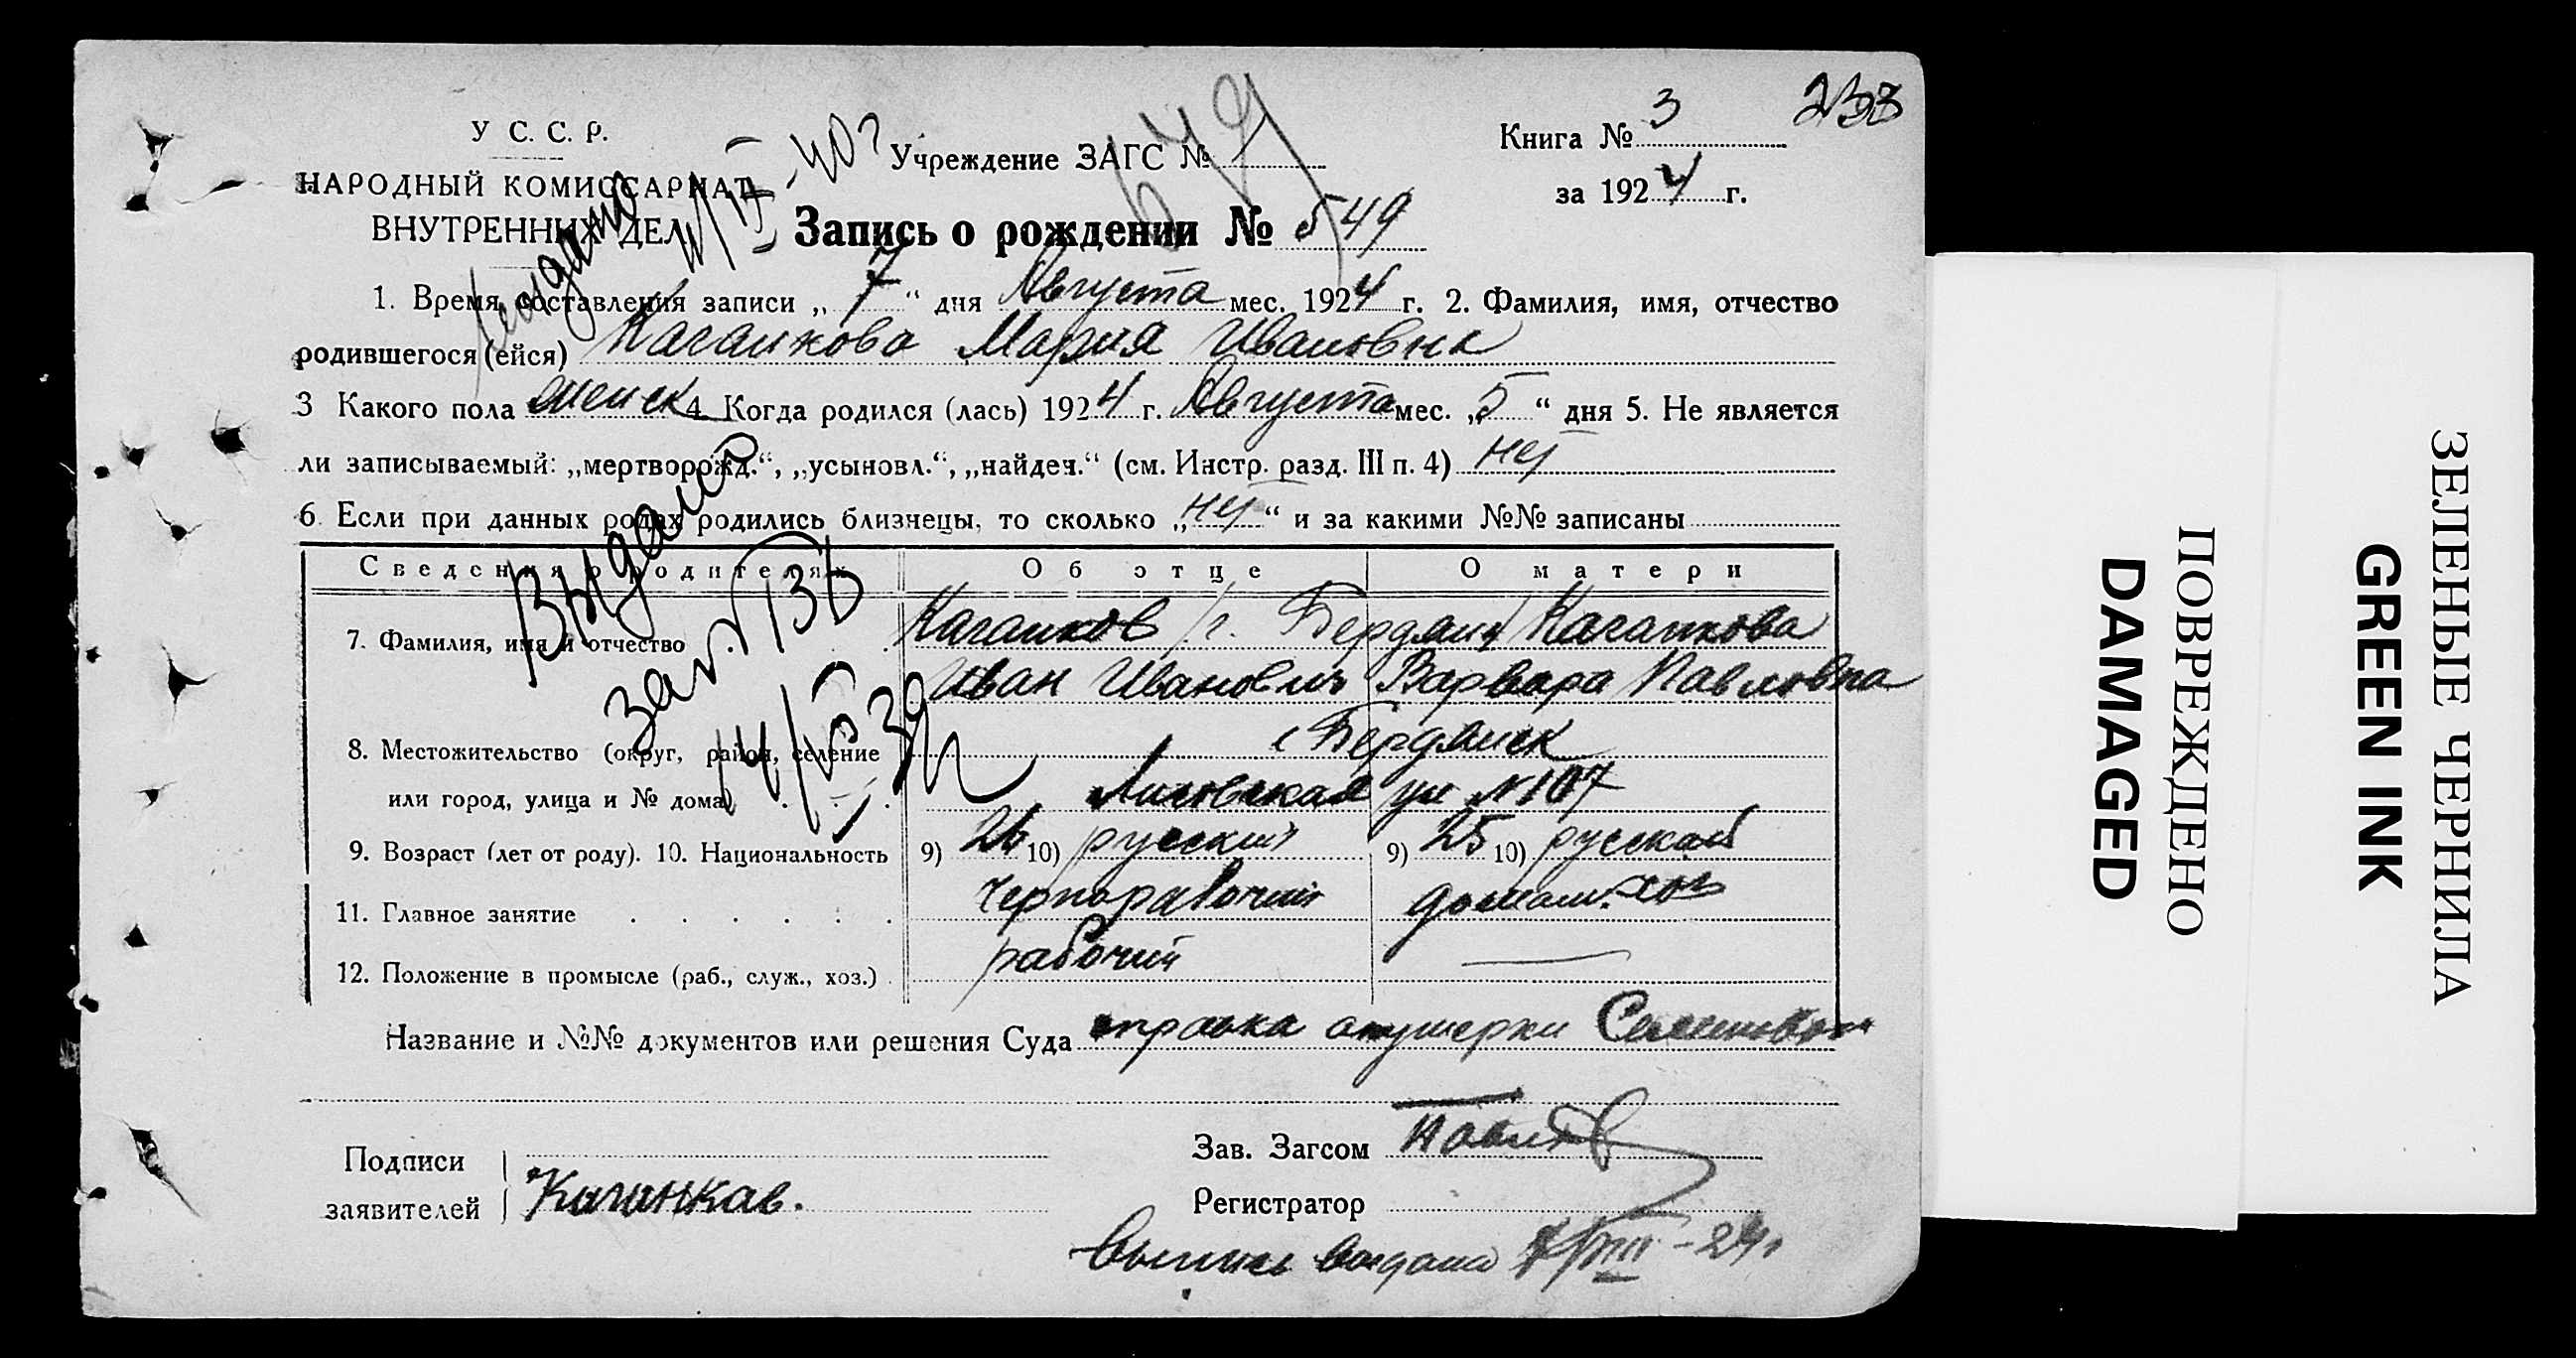 238
У С. С. Р.
НАРОДНЫЙ КОМИССАРИАТ
ВНУТРЕННИХ ДЕЛ
Учреждение ЗАГС №
Книга № 3
за 1924 г.
Запись о рождении № 549
1. Время составления записи „ 7 “ дня Августа мес. 1924 г. 2. Фамилия, имя, отчество
родившегося (ейся) Каганкова Мария Ивановна
3 Какого пола женск 4 Когда родился (лась) 1924 г. Августа мес. „5“ дня 5. Не является
ли записываемый: „мертворожд.“, „усыновл.“, „найден.“ (см. Инстр. разд. III п. 4) нет
6. Если при данных родах родились близнецы, то сколько „нет“ и за какими №№ записаны
Сведения о родителях Об отце О матери
7. Фамилия, имя и отчество Каганков /г. Бердянск/ Каганкова
Иван Иванович Варвара Павловна
8. Местожительство (округ, район, селение г Бердянск
или город, улица и № дома) ул №107
9. Возраст (лет от роду). 10. Национальность 9) 26 10) русский 9) 25 10) русская
11. Главное занятие чернорабочий домаш. хоз
12. Положение в промысле (раб., служ., хоз.) рабочий —
Название и №№ документов или решения Суда справка акушерки
Подписи
заявителей Каганков.
Зав. Загсом
Регистратор
Выпись выдана 7/VIII-24
Выдано
ПОВРЕЖДЕНО
DAMAGED
ЗЕЛЕНЫЕ ЧЕРНИЛА
GREEN INK